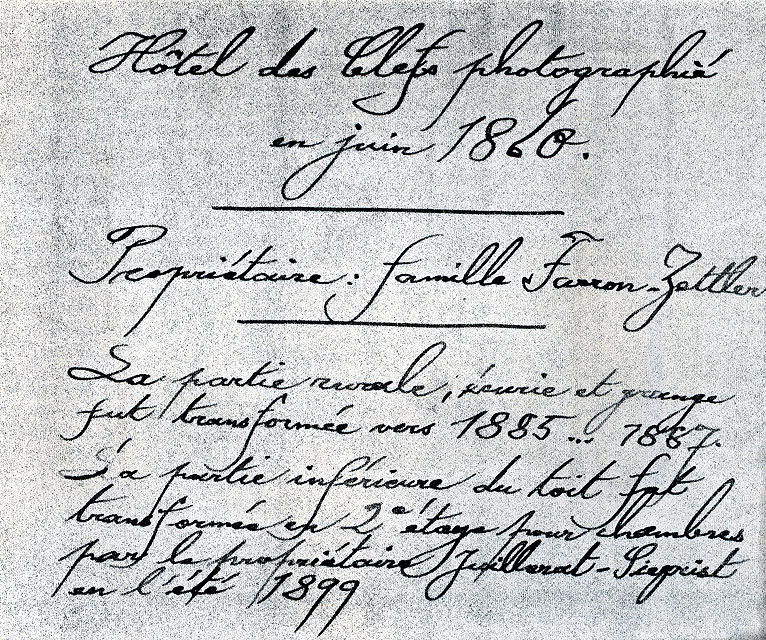 Hôtel des Clefs photographié
en juin 1860.
Propriétaire : famille Farron-Zettler
La partie rurale, écurie et grange
fut transformée vers 1885... 1887.
La partie inférieure du toit fut
transformée en 2e étage pour chambres
par le propriétaire Juillerat-Siegrist
en l'été 1899